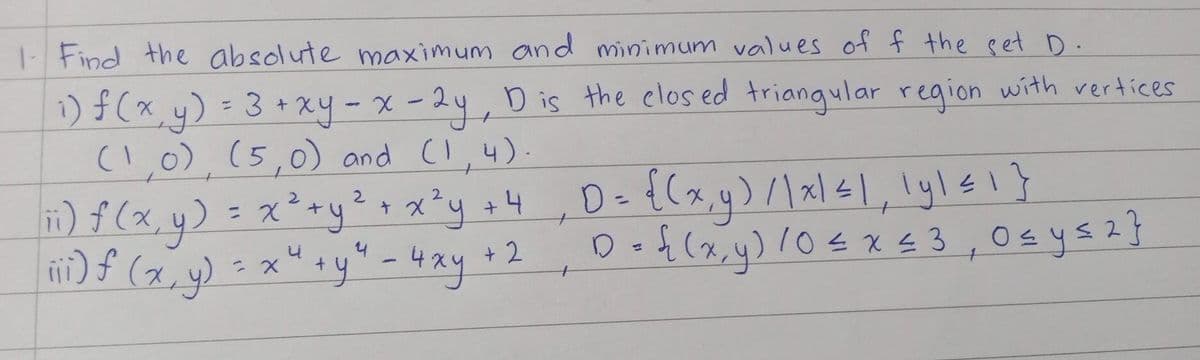 1- Find the absolute maximum and minimum values of f the set D.
i) f(x,y) = 3 + xy - x - 2y, D is the closed triangular region with vertices
(1,0), (5,0) and (1,4).
ii) f(x,y) = x² + y² + x²y + 4, D = {(x,y) / |x| ≤ 1, |y| ≤ 1}
iii) f(x,y) = x⁴ + y⁴ - 4xy + 2, D = {(x,y) / 0 ≤ x ≤ 3, 0 ≤ y ≤ 2}